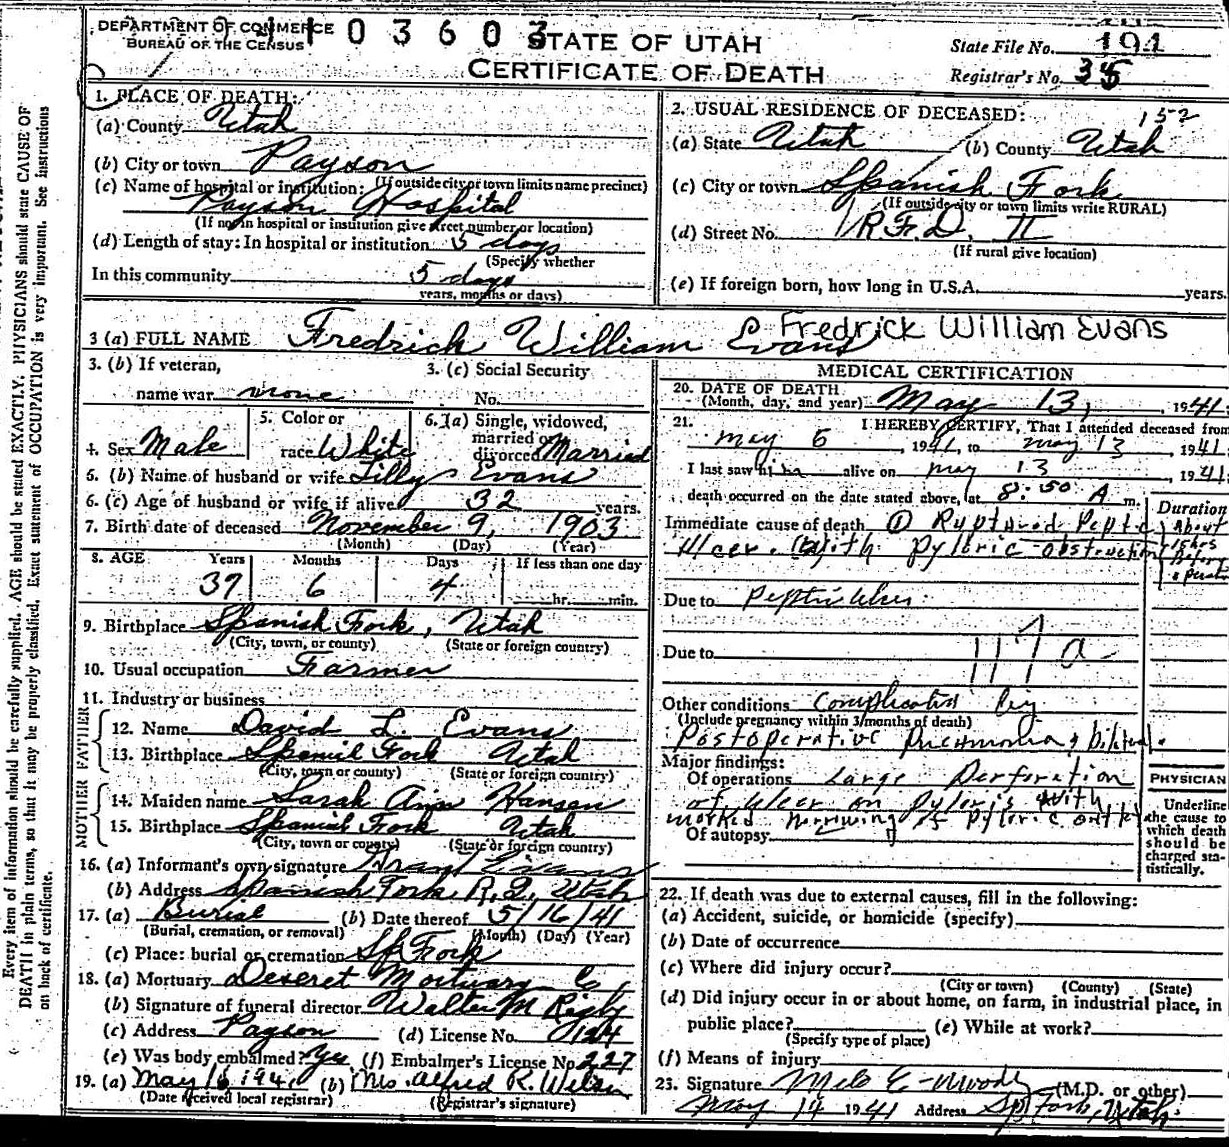 DEPARTMENT OF COMMERCE
BUREAU OF THE CENSUS
03603
STATE OF UTAH
CERTIFICATE OF DEATH
State File No. 191
Registrar's No. 35
Every item of information should be carefully supplied. AGE should be stated EXACTLY. PHYSICIANS should state CAUSE OF
DEATH in plain terms, so that it may be properly classified. Exact statement of OCCUPATION is very important. See instructions
on back of certificate.
1. PLACE OF DEATH:
(a) County Utah
(b) City or town Payson
(If outside city or town limits name precinct)
(c) Name of hospital or institution:
Payson Hospital
(If not in hospital or institution give street number or location)
(d) Length of stay: In hospital or institution 5 days
(Specify whether
In this community 5 days
years, months or days)
2. USUAL RESIDENCE OF DECEASED: 152
(a) State Utah (b) County Utah
(c) City or town Spanish Fork
(If outside city or town limits write RURAL)
(d) Street No. R.F.D. II
(If rural give location)
(e) If foreign born, how long in U.S.A. years.
3 (a) FULL NAME Fredrick William Evans Fredrick William Evans
3. (b) If veteran,
name war none
3. (c) Social Security
No.
4. Sex Male
5. Color or
race White
6. (a) Single, widowed,
married or
divorced Married
6. (b) Name of husband or wife Lilly Evans
6. (c) Age of husband or wife if alive 32 years.
7. Birth date of deceased November 9, 1903
(Month) (Day) (Year)
8. AGE Years Months Days If less than one day
37 6 4 hr. min.
9. Birthplace Spanish Fork, Utah
(City, town, or county) (State or foreign country)
10. Usual occupation Farmer
11. Industry or business
FATHER
12. Name David L. Evans
13. Birthplace Spanish Fork Utah
(City, town or county) (State or foreign country)
MOTHER
14. Maiden name Sarah Ann Hansen
15. Birthplace Spanish Fork Utah
(City, town or county) (State or foreign country)
16. (a) Informant's own signature Evans
(b) Address Spanish Fork R.2, Utah
17. (a) Burial (b) Date thereof 5/16/41
(Burial, cremation, or removal) (Month) (Day) (Year)
(c) Place: burial or cremation Sp. Fork
18. (a) Mortuary Deseret Mortuary Co.
(b) Signature of funeral director Walter M Rigby
(c) Address Payson (d) License No. 124
(e) Was body embalmed? Yes (f) Embalmer's License No. 227
19. (a) May 16, 1941 (b) Mrs. Alfred R. Wilson
(Date received local registrar) (Registrar's signature)
MEDICAL CERTIFICATION
20. DATE OF DEATH
(Month, day, and year) May 13, 1941
21. I HEREBY CERTIFY, That I attended deceased from
May 6, 1941, to May 13, 1941
I last saw him alive on May 13 1941
death occurred on the date stated above, at 8:50 A m.
Duration
Immediate cause of death (1) Ruptured Peptic
Ulcer. (2) With pyloric obstruction
About
15 hrs
Before
operation
Due to Peptic Ulcer
Due to 117a
Other conditions Complicated by
(Include pregnancy within 3 months of death)
Postoperative Pneumonia, bilateral.
Major findings:
Of operations Large Perforation
of Ulcer on Pyloris with
marked narrowing of pyloric outlet
Of autopsy
PHYSICIAN
Underline
the cause to
which death
should be
charged sta-
tistically.
22. If death was due to external causes, fill in the following:
(a) Accident, suicide, or homicide (specify)
(b) Date of occurrence
(c) Where did injury occur?
(City or town) (County) (State)
(d) Did injury occur in or about home, on farm, in industrial place, in
public place? (e) While at work?
(Specify type of place)
(f) Means of injury
23. Signature Milo C. Moody (M.D. or other)
May 14 1941 Address Sp. Fork, Utah.